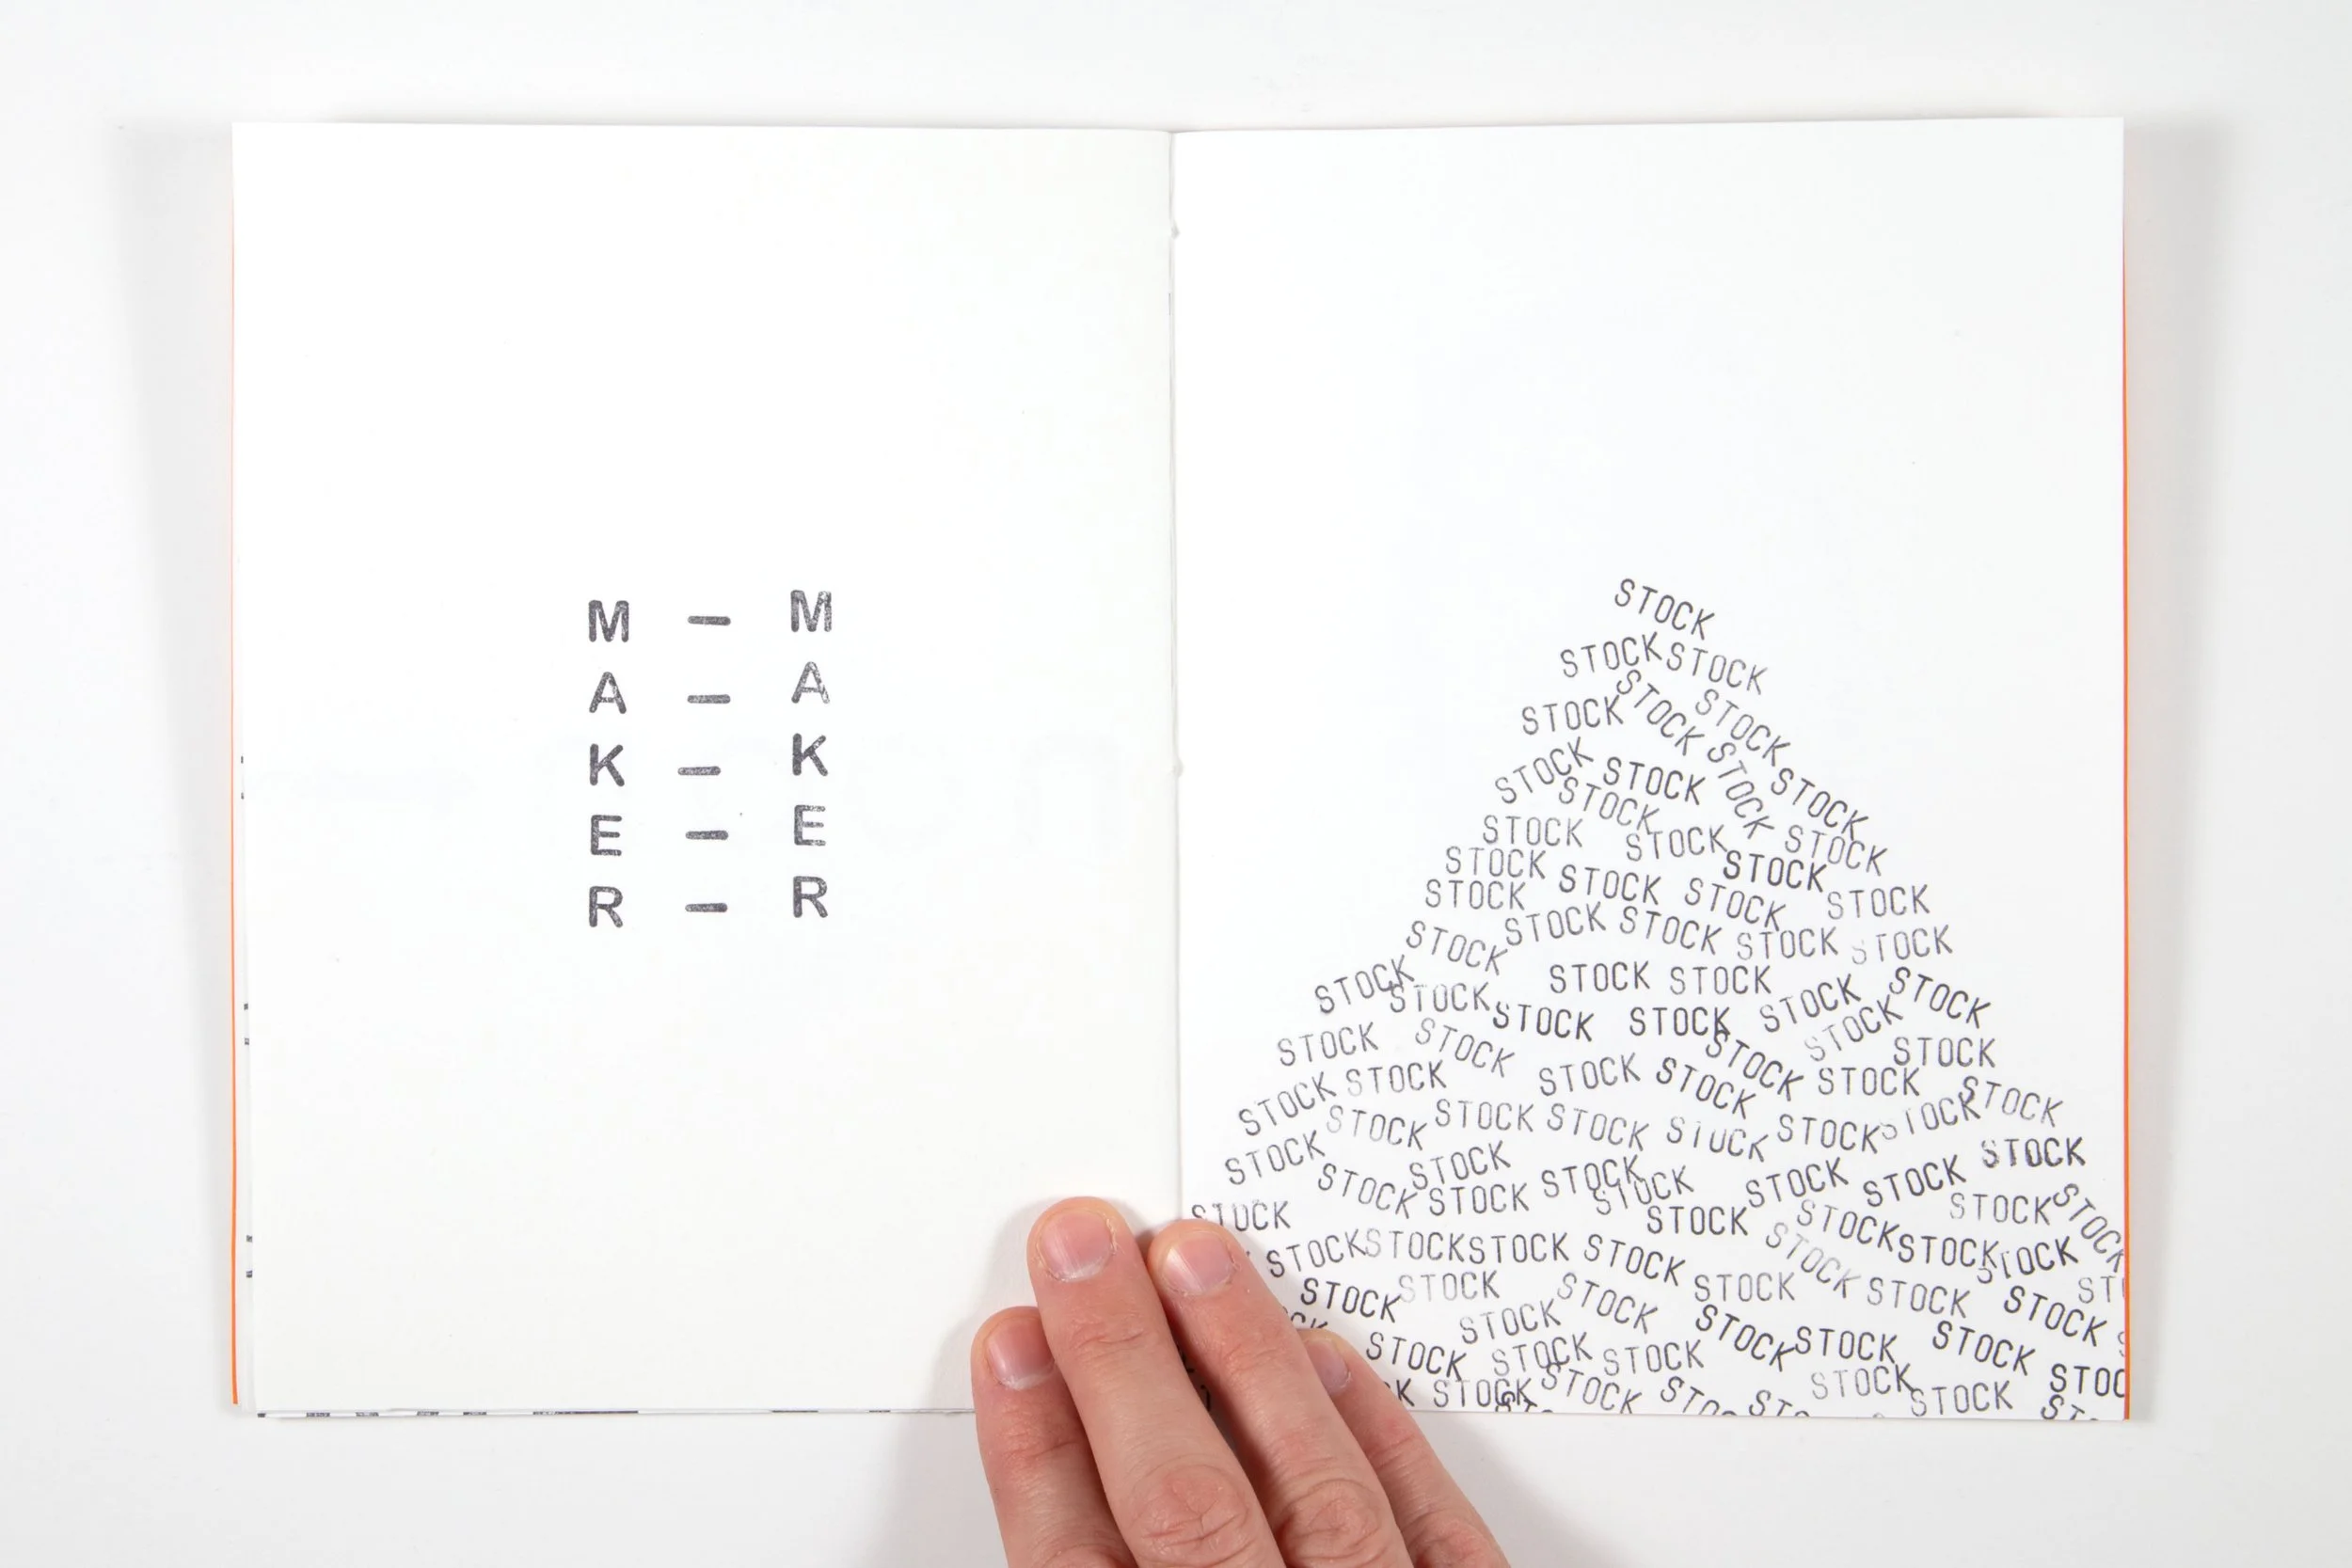 M — M
A — A
K — K
E — E
R — R
STOCK
STOCK STOCK
STOCK STOCK STOCK
STOCK STOCK STOCK STOCK
STOCK
STOCK STOCK STOCK
STOCK STOCK
STOCK STOCK STOCK STOCK
STOCK STOCK STOCK STOCK STOCK
STOCK STOCK STOCK
STOCK STOCK STOCK STOCK STOCK
STOCK STOCK STOCK STOCK
STOCK STOCK STOCK STOCK STOCK
STOCK STOCK STOCK STOCK STOCK STOCK STOCK STOCK
STOCK STOCK STOCK STOCK STOCK
STOCK STOCK STOCK STOCK STOCK STOCK
STOCK STOCK STOCK STOCK STOCK
STOCK STOCK STOCK STOCK STOCK STOCK STOCK
STOCK STOCK STOCK STOCK STOCK STOCK
STOCK STOCK STOCK STOCK
STOCK STOCK STOCK
STOCK STOCK STOCK STOCK